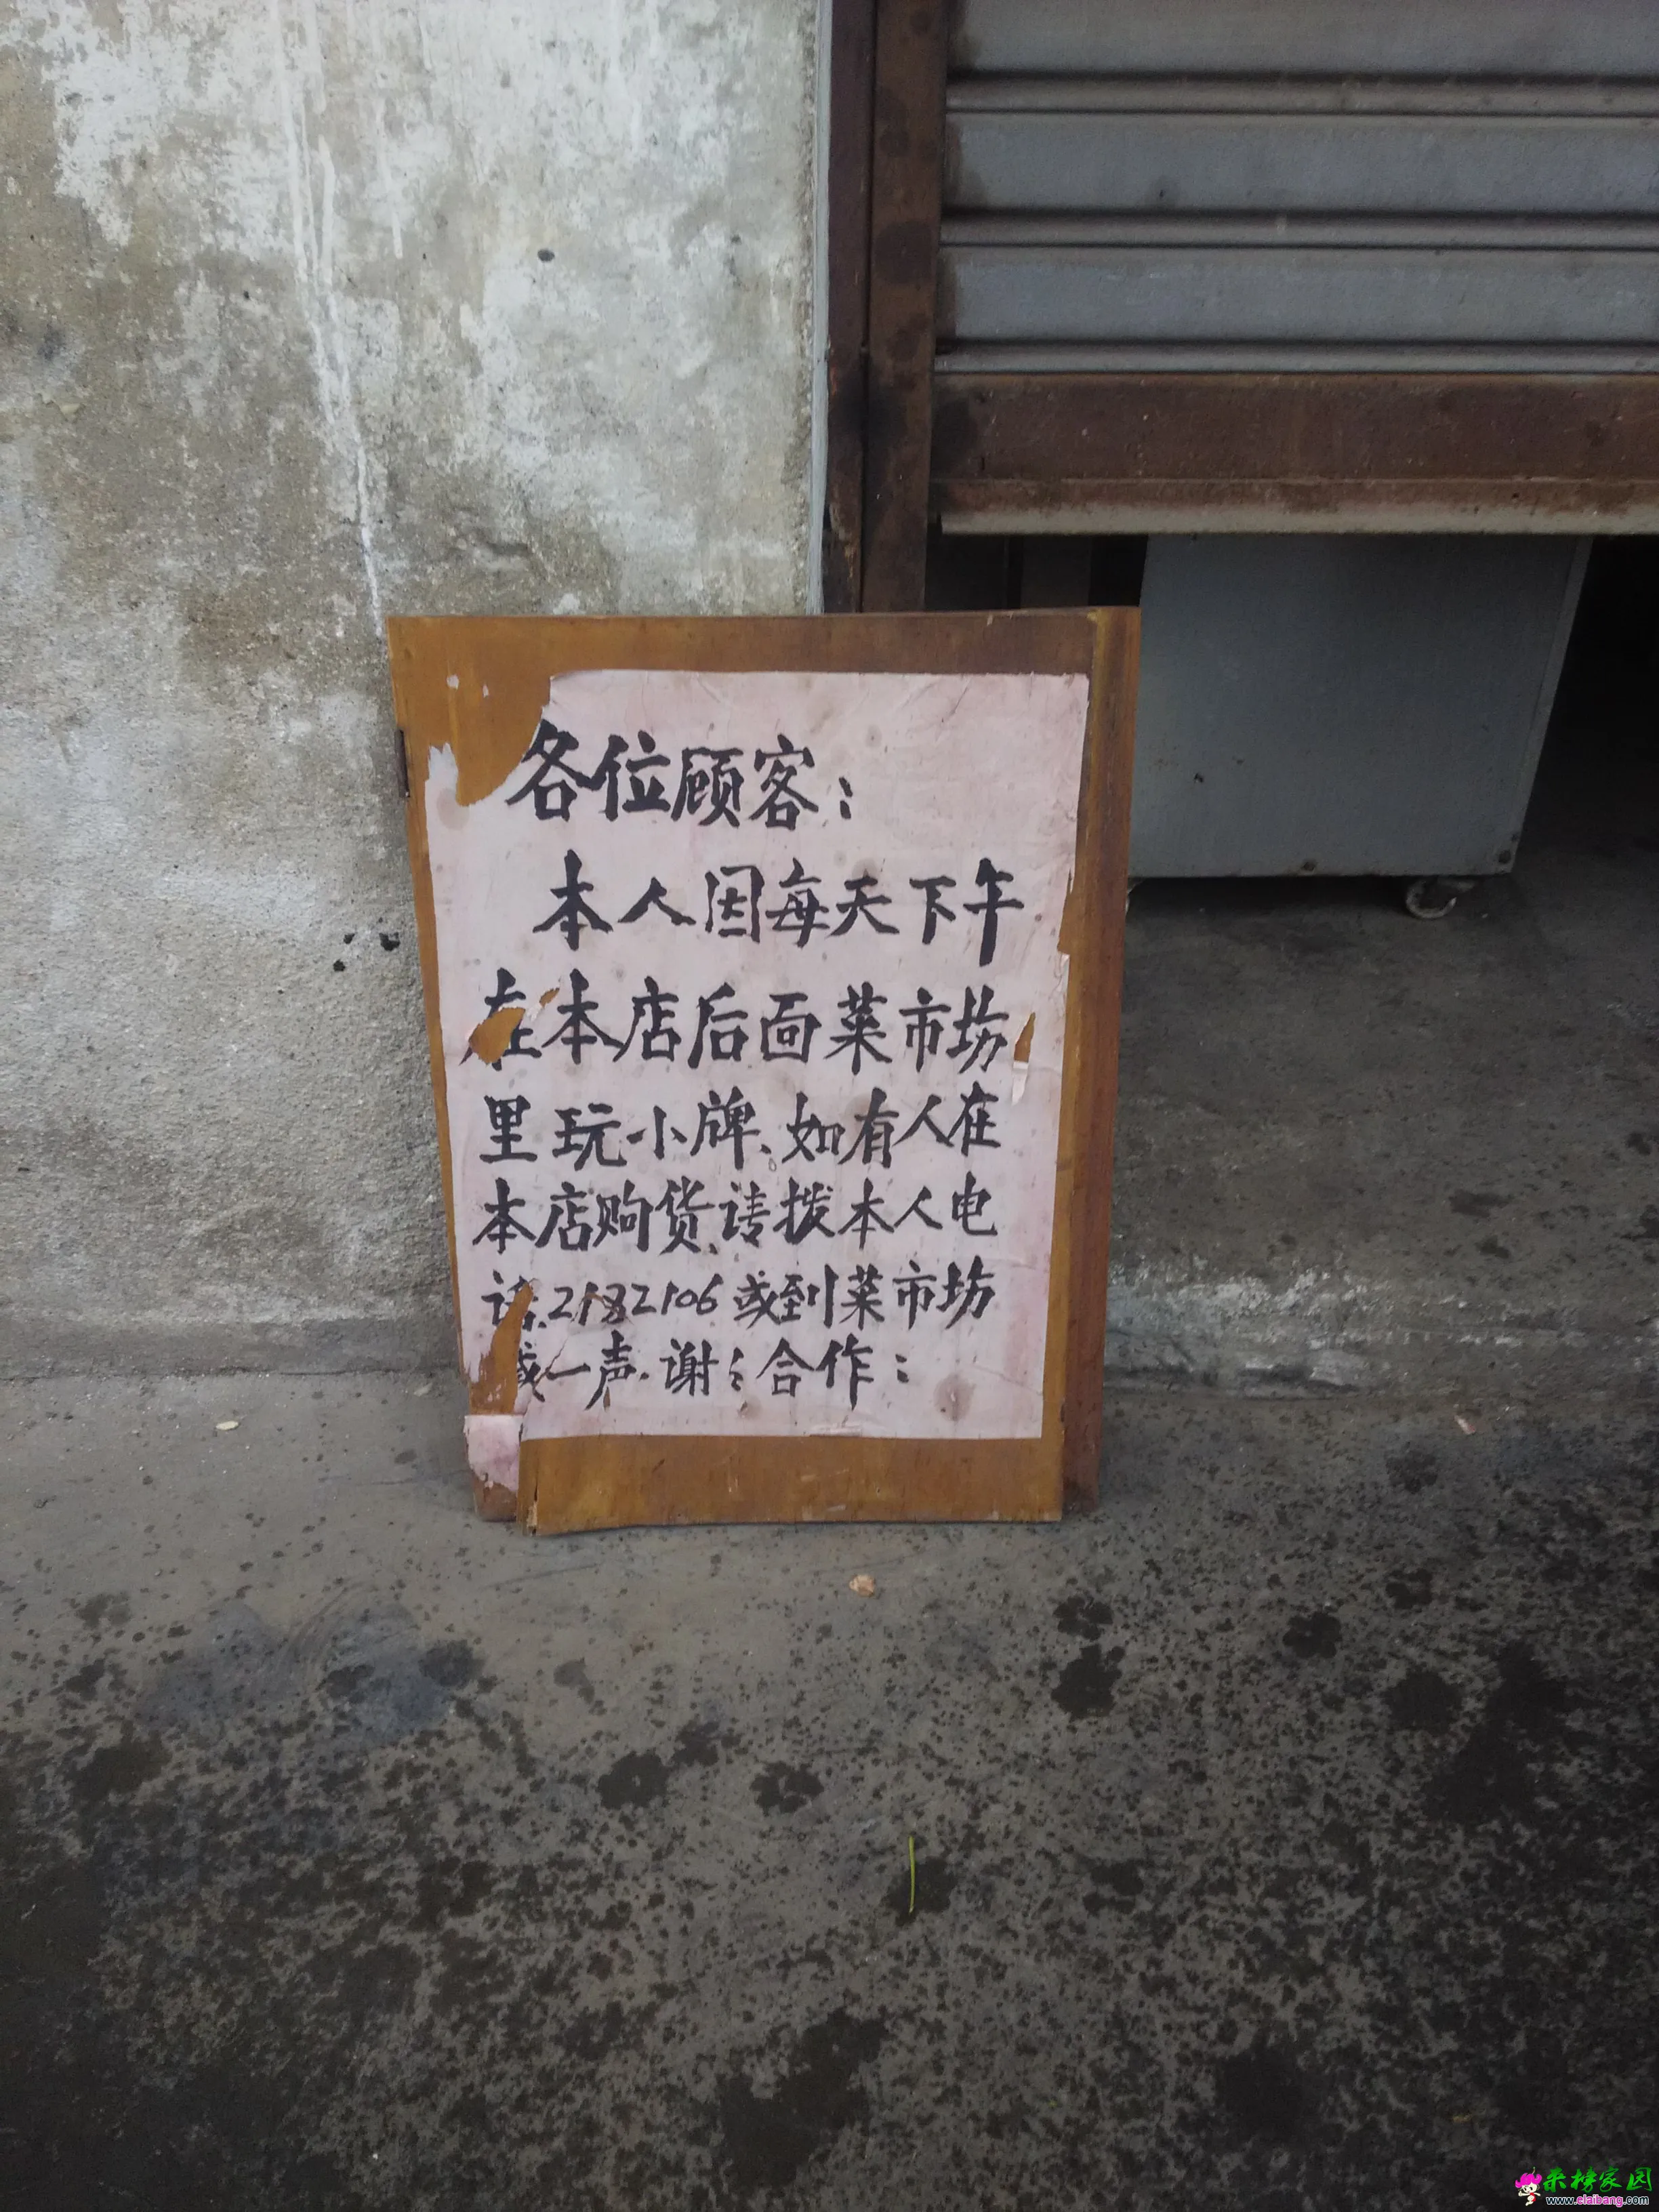 各位顾客：
本人因每天下午
在本店后面菜市场
里玩小牌、如有人在
本店购货、请拨本人电
话、2182106或到菜市场
喊一声.谢〻合作：
来榜家园
www.elaibang.com